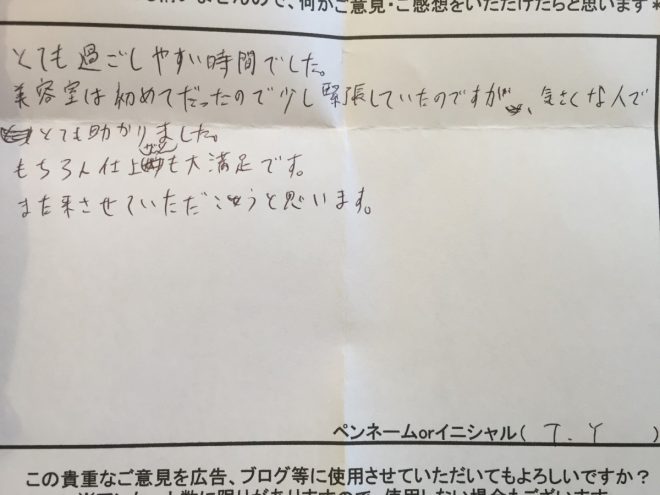 せんので、何かご意見・ご感想をいただけたらと思います*
とても過ごしやすい時間でした。
美容室は初めてだったので少し緊張していたのですが、気さくな人で
とても助かりました。
もちろん仕上がりも大満足です。
また来させていただこうと思います。
ペンネームorイニシャル( T.Y )
この貴重なご意見を広告、ブログ等に使用させていただいてもよろしいですか?